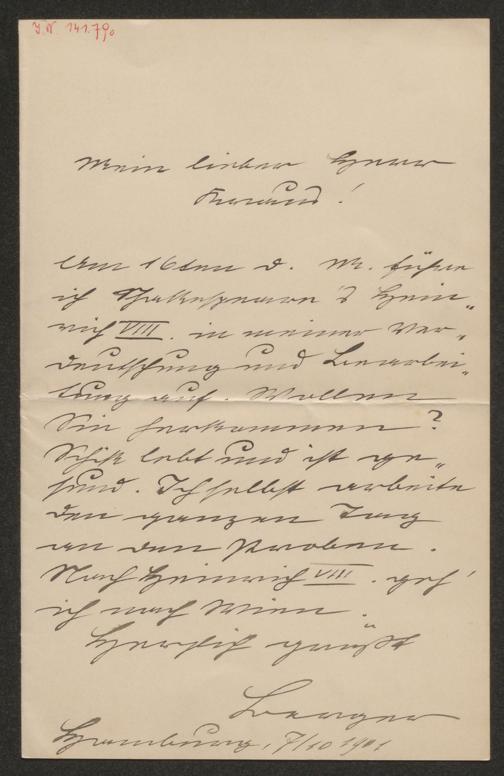 I.N. 141.790
Mein lieber Herr
Freund!
Am 16ten d. M. führe
ich Shakespeare's Hein„
rich VIII. in meiner Ver„
deutschung und Bearbei„
tung auf. Wollen
Sie herkommen?
lebt und ist ge„
sund. Ich selbst arbeite
den ganzen Tag
an den Proben.
Nach Heinrich VIII. geh'
ich nach Wien.
Herzlich grüßt
Berger
Hamburg, 7/10 1901